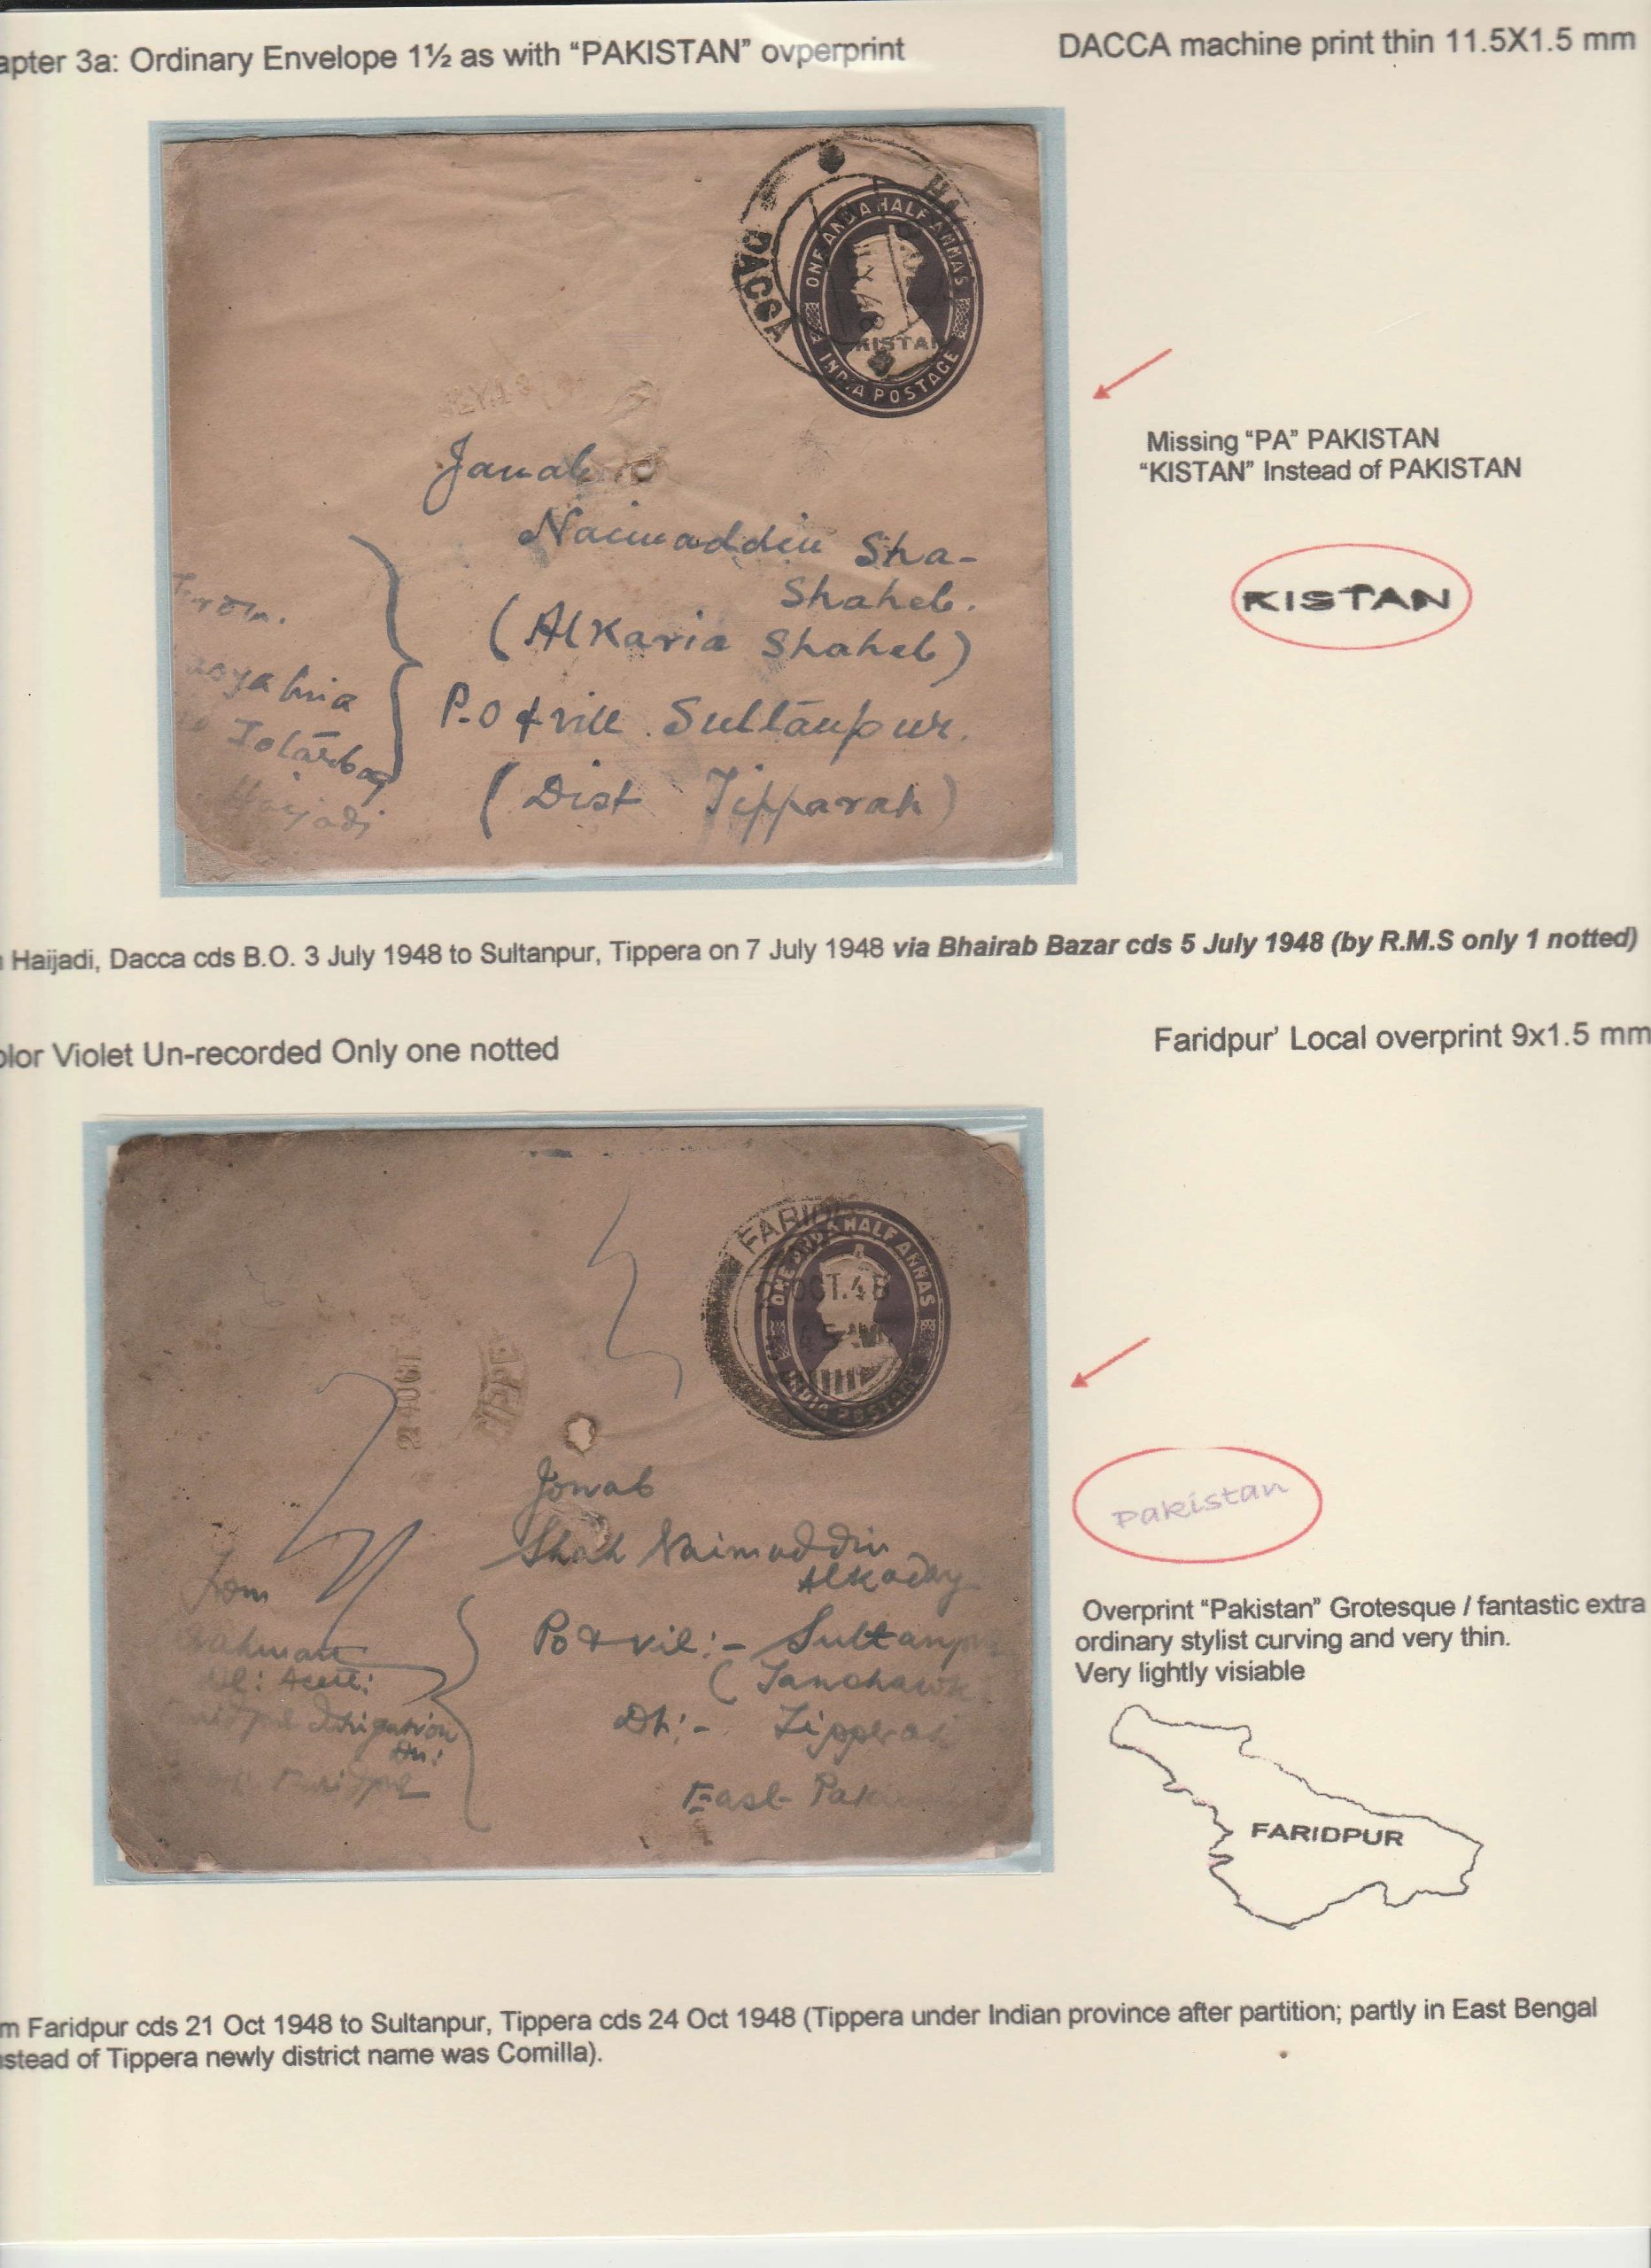 apter 3a: Ordinary Envelope 1½ as with “PAKISTAN” ovperprint
DACCA machine print thin 11.5X1.5 mm
DACCA
ONE AND A HALF ANNAS
KISTAN
INDIA POSTAGE
Missing “PA” PAKISTAN
“KISTAN” Instead of PAKISTAN
KISTAN
Janab
Naimuaddin Sha-
Shaheb.
(AlKaria Shaheb)
P.O & vill. Sultānpur.
(Dist Tipparah)
From.
Haijadi
Haijadi, Dacca cds B.O. 3 July 1948 to Sultanpur, Tippera on 7 July 1948 via Bhairab Bazar cds 5 July 1948 (by R.M.S only 1 notted)
olor Violet Un-recorded Only one notted
Faridpur’ Local overprint 9x1.5 mm
FARIDP
ONE AND A HALF ANNAS
OCT.48
INDIA POSTAGE
24 OCT.
TIPPE
Jonab
Shah Naimuddin
Alkadry
Po & vil:- Sultanpu
Dt:- Tipperah
East- Paki
From
Rahman
Faridpur
Pakistan
Overprint “Pakistan” Grotesque / fantastic extra
ordinary stylist curving and very thin.
Very lightly visiable
FARIDPUR
m Faridpur cds 21 Oct 1948 to Sultanpur, Tippera cds 24 Oct 1948 (Tippera under Indian province after partition; partly in East Bengal
nstead of Tippera newly district name was Comilla).